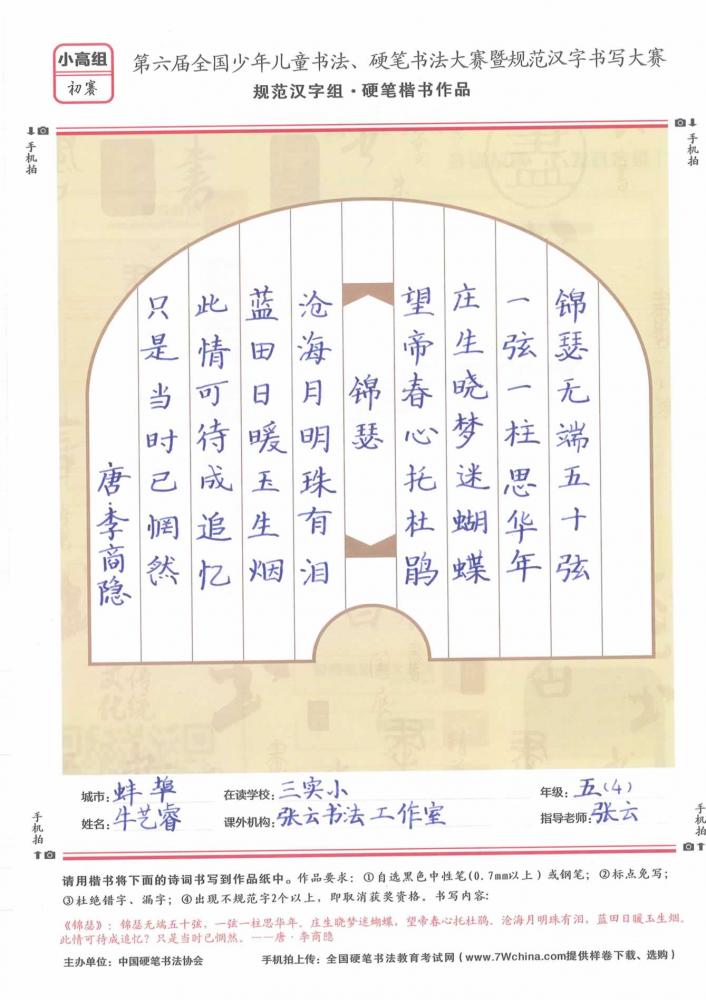 小高组
初赛
第六届全国少年儿童书法、硬笔书法大赛暨规范汉字书写大赛
规范汉字组·硬笔楷书作品
手机拍
手机拍
锦瑟无端五十弦
一弦一柱思华年
庄生晓梦迷蝴蝶
望帝春心托杜鹃
锦瑟
沧海月明珠有泪
蓝田日暖玉生烟
此情可待成追忆
只是当时已惘然
唐·李商隐
城市：蚌埠
在读学校：三实小
年级：五(4)
姓名：牛艺睿
课外机构：张云书法工作室
指导老师：张云
手机拍
手机拍
请用楷书将下面的诗词书写到作品纸中。作品要求：①自选黑色中性笔(0.7mm以上）或钢笔；②标点免写；
③杜绝错字、漏字；④出现不规范字2个以上，即取消获奖资格。书写内容：
《锦瑟》：锦瑟无端五十弦，一弦一柱思华年。庄生晓梦迷蝴蝶，望帝春心托杜鹃。沧海月明珠有泪，蓝田日暖玉生烟。
此情可待成追忆？只是当时已惘然。——唐·李商隐
主办单位：中国硬笔书法协会
手机拍上传：全国硬笔书法教育考试网（www.7Wchina.com提供样卷下载、选购）